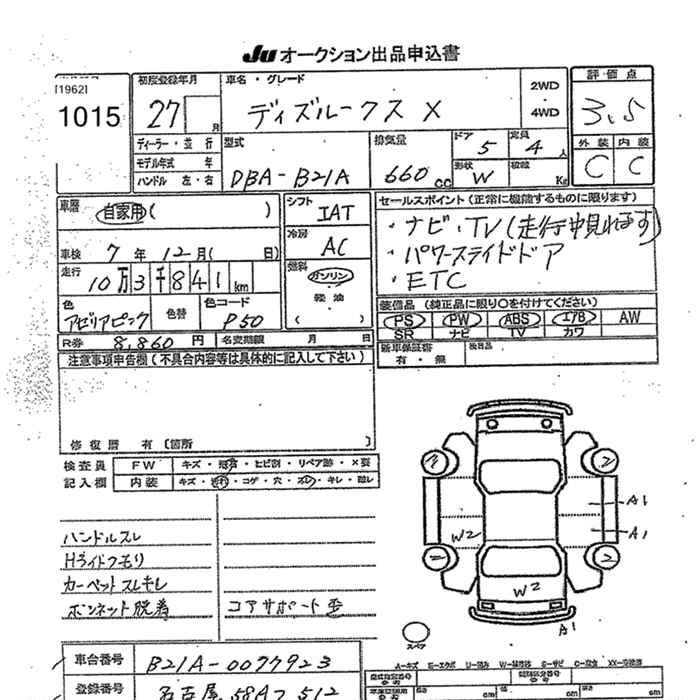 JU オークション出品申込書
[1962]
1015
初度登録年月 27 月
車名・グレード ディズルークス X
2WD
4WD
評価点 3.5
外装 内装
C C
ディーラー・並行
モデル年式 年
ハンドル 左・右
型式 DBA-B21A
排気量 660 cc
ドア 5 定員 4 人
形状 W 積載 Kg
車歴 自家用( )
車検 7 年 12 月( 日)
走行 10万3千841 km
シフト IAT
冷房 AC
燃料 ガソリン
軽油
( )
セールスポイント(正常に機能するものに限ります)
・ナビ・TV(走行中見れます)
・パワースライドドア
・ETC
色 アゼリアピンク
色替
色コード P50
装備品(純正品に限り○を付けてください)
PS PW ABS エアB AW
SR ナビ TV カワ
R券 8,860 円 名変期限 月 日
新車保証書
有・無
後日品
注意事項申告欄(不具合内容等は具体的に記入して下さい)
修復歴 有〔箇所 〕
検査員 FW キズ・ ・ヒビ割・リペア跡・×要
記入欄 内装 キズ・汚れ・コゲ・穴・スレ・キレ・
ハンドルスレ
Hライトクモリ
カーペットスレキレ
ボンネット脱着
コアサポート歪
2 2
A1
A1
W2
2 2
W2
A1
スペア
車台番号 B21A-0077923
登録番号 名古屋 58A7 512
A-キズ E-エクボ
cm cm cm